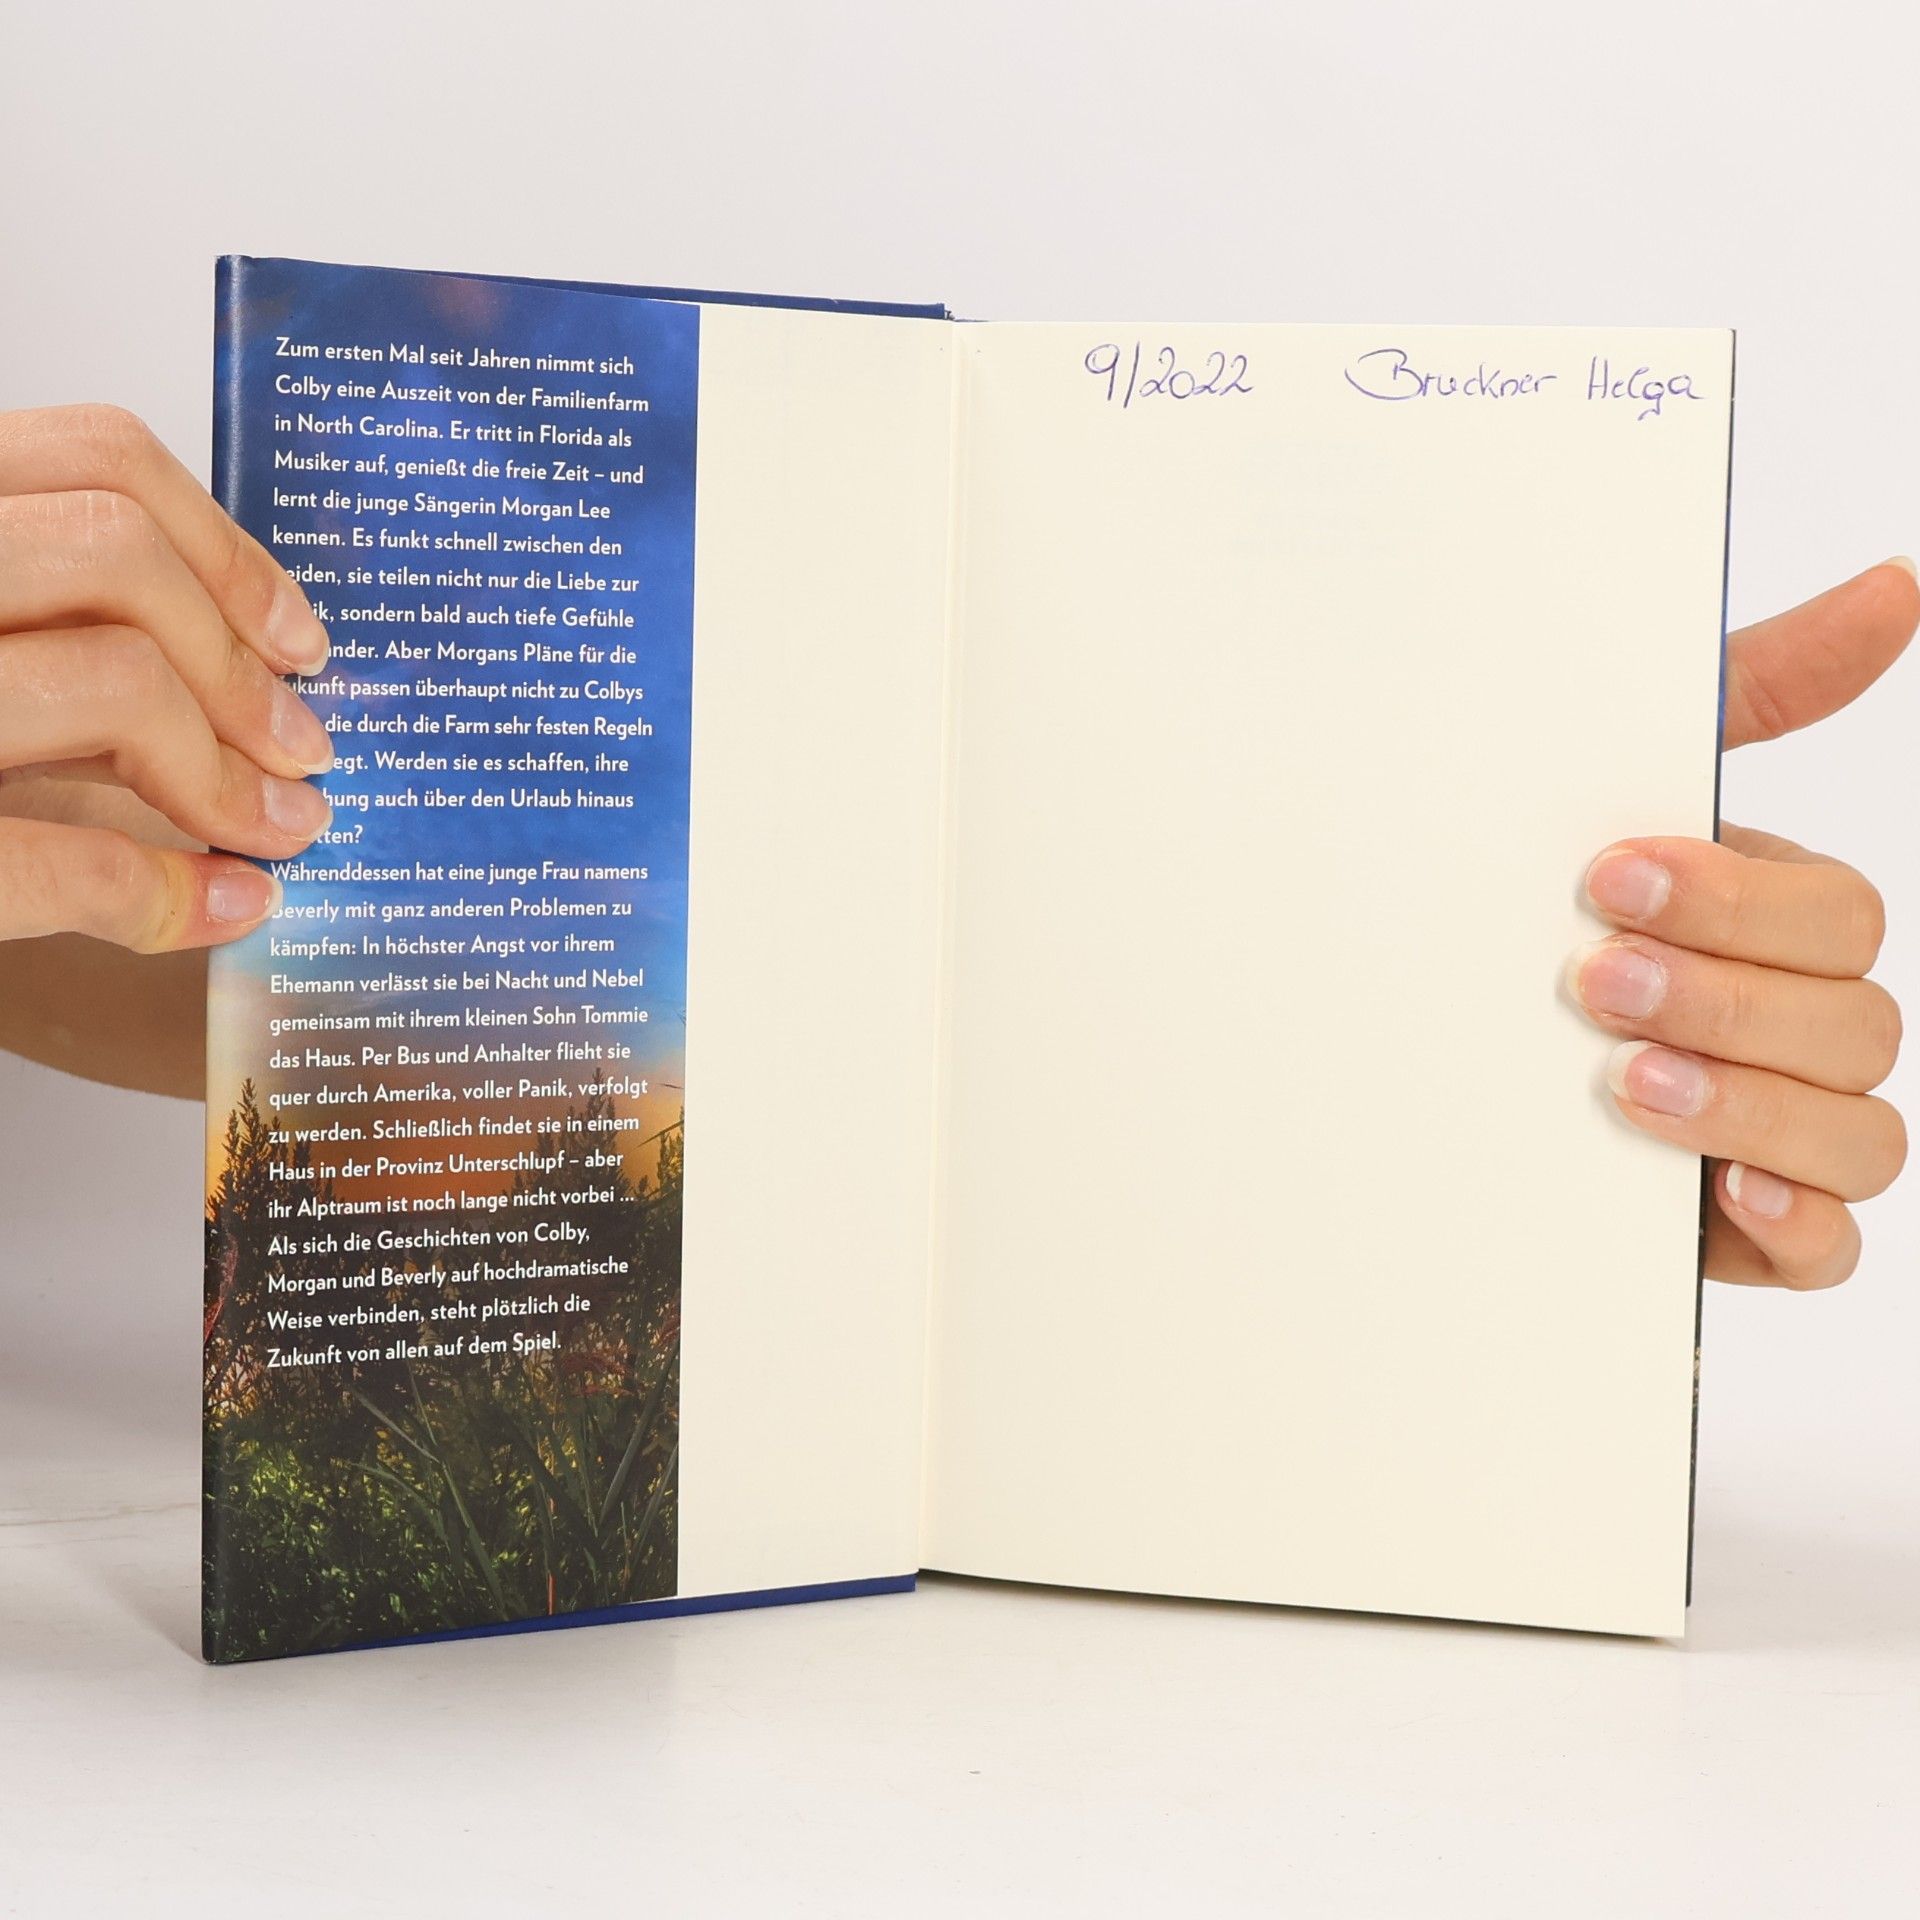 Zum ersten Mal seit Jahren nimmt sich
Colby eine Auszeit von der Familienfarm
in North Carolina. Er tritt in Florida als
Musiker auf, genießt die freie Zeit – und
lernt die junge Sängerin Morgan Lee
kennen. Es funkt schnell zwischen den
eiden, sie teilen nicht nur die Liebe zur
ik, sondern bald auch tiefe Gefühle
nder. Aber Morgans Pläne für die
ukunft passen überhaupt nicht zu Colbys
die durch die Farm sehr festen Regeln
egt. Werden sie es schaffen, ihre
hung auch über den Urlaub hinaus
ten?
Währenddessen hat eine junge Frau namens
Beverly mit ganz anderen Problemen zu
kämpfen: In höchster Angst vor ihrem
Ehemann verlässt sie bei Nacht und Nebel
gemeinsam mit ihrem kleinen Sohn Tommie
das Haus. Per Bus und Anhalter flieht sie
quer durch Amerika, voller Panik, verfolgt
zu werden. Schließlich findet sie in einem
Haus in der Provinz Unterschlupf – aber
ihr Alptraum ist noch lange nicht vorbei ...
Als sich die Geschichten von Colby,
Morgan und Beverly auf hochdramatische
Weise verbinden, steht plötzlich die
Zukunft von allen auf dem Spiel.
9/2022 Bruckner Helga